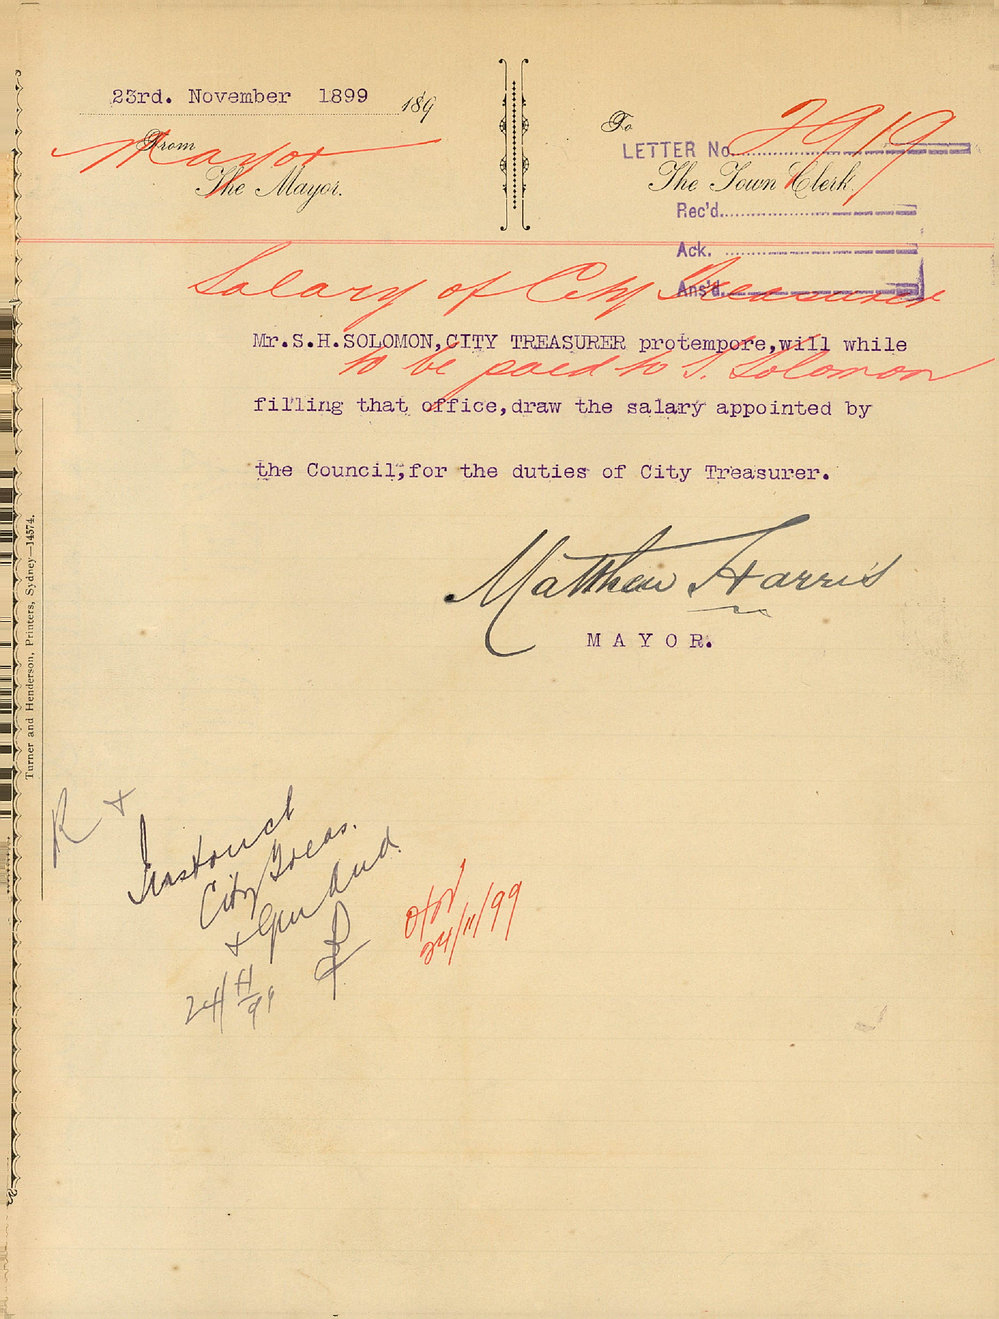 23rd. November 1899 189
From
Mayor
The Mayor.
To
LETTER No. 2919
The Town Clerk.
Rec'd.
Ack.
Ans'd.
Salary of City Treasurer
Mr.S.H.SOLOMON,CITY TREASURER protempore,will while
to be paid to S. Solomon
filling that office,draw the salary appointed by
the Council,for the duties of City Treasurer.
Matthew Harris
MAYOR.
Turner and Henderson, Printers, Sydney—14574.
R +
Instruct
City Treas.
+ Aud.
24/11/99
24/11/99